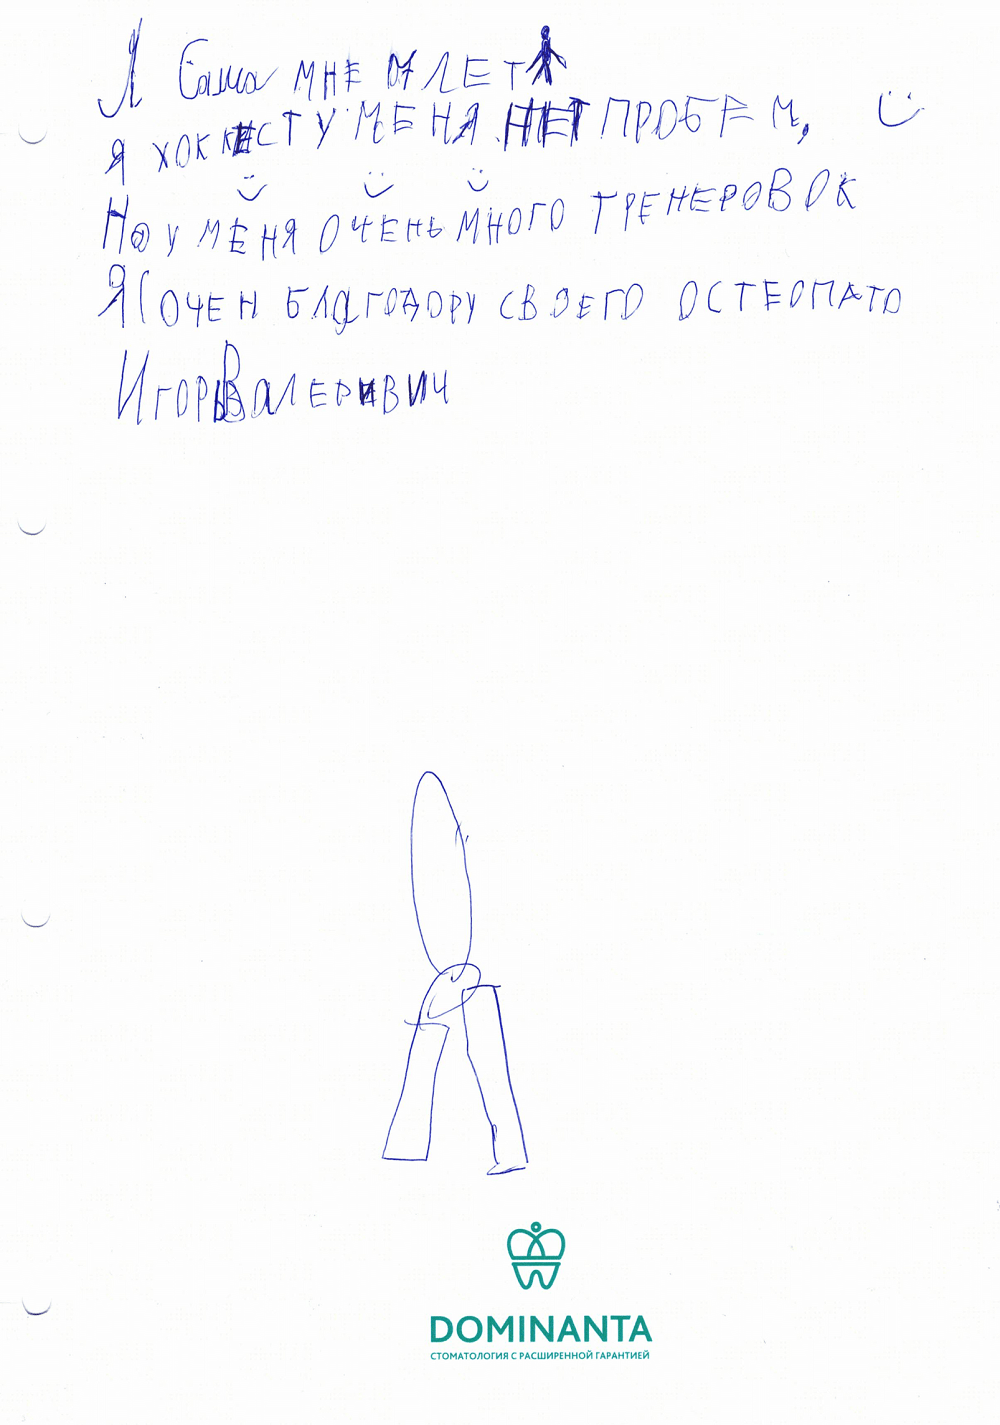 Я Саша МНЕ 07 ЛЕТ
Я ХОККЕИСТ У МЕНЯ НЕТ ПРОБЕМ,
Но У МЕНЯ ОЧЕНЬ МНОГО ТРЕНЕРОВОК
Я ОЧЕН БЛАГОДОРУ СВОЕГО ОСТЕОПАТО
ИГОРЬ ВАЛЕРИВИЧ
DOMINANTA
СТОМАТОЛОГИЯ С РАСШИРЕННОЙ ГАРАНТИЕЙ